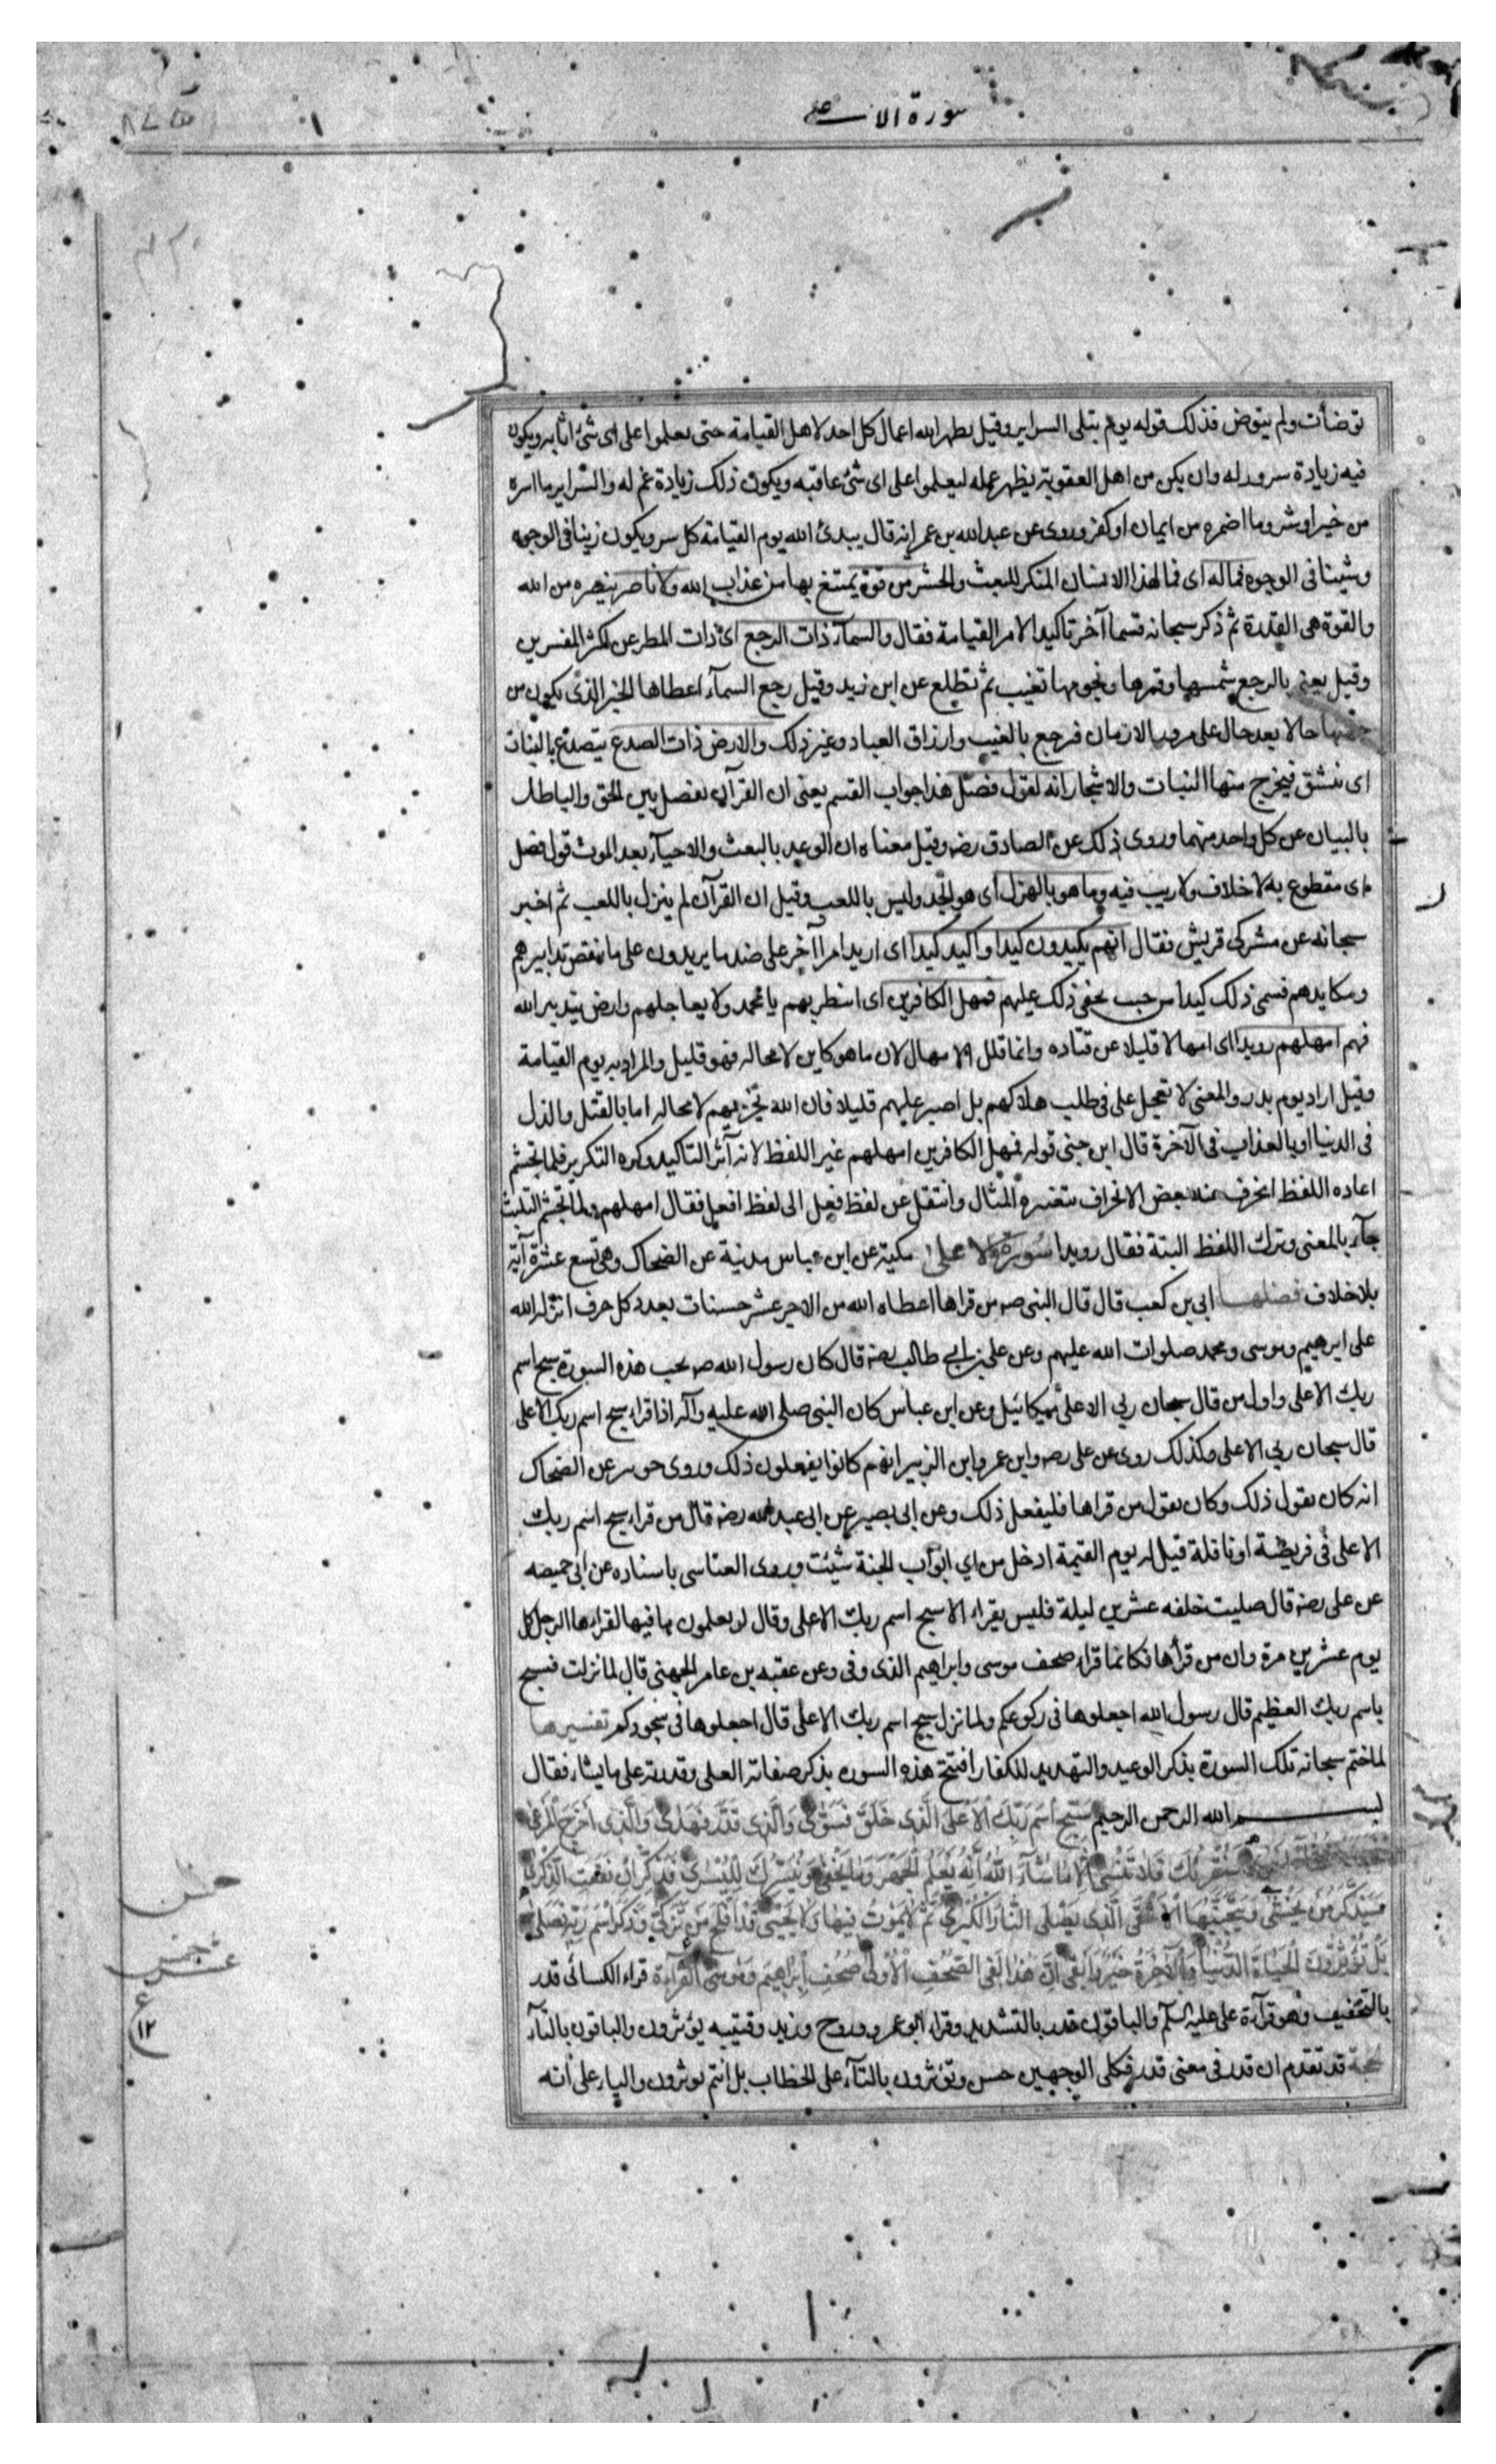 سورة الاعلى
توضأت ولم يتوض فذلك قوله يوم تبلى السراير وقيل يظهر الله اعمال كل احد لاهل القيامة حتى يعلموا على اى شئ اثابه ويكون
فيه زيادة سرور له وان يكن من اهل العقوبة يظهر عمله ليعلموا على اى شئ عاقبه ويكون ذلك زيادة غم له والسراير ما اسره
من خير او شر وما اضمره من ايمان او كفر وروى عن عبد الله بن عمر انه قال يبدئ الله يوم القيامة كل سر ويكون زينا فى الوجوه
وشينا فى الوجوه فماله اى فما لهذا الانسان المنكر للبعث والحشر من قوة يمتنع بها من عذاب الله ولا ناصر ينصره من الله
والقوة هى القدرة ثم ذكر سبحانه قسما آخر تاكيدا لامر القيامة فقال والسمآء ذات الرجع اى ذات المطر عن اكثر المفسرين
وقيل يعنى بالرجع شمسها وقمرها ونجومها تغيب ثم تطلع عن ابن زيد وقيل رجع السمآء اعطاها الخير الذى يكون من
جهتها حالا بعد حال على مرور الازمان فرجع بالغيب وارزاق العباد وغير ذلك والارض ذات الصدع يتصدع بالنبات
اى تنشق فيخرج منها النبات والاشجار انه لقول فصل هذا جواب القسم يعنى ان القرآن يفصل بين الحق والباطل
بالبيان عن كل واحد منهما وروى ذلك عن الصادق رضه وقيل معناه ان الوعيد بالبعث والاحيآء بعد الموت قول فصل
اى مقطوع به لا خلاف ولا ريب فيه وما هو بالهزل اى هو الجد وليس باللعب وقيل ان القرآن لم ينزل باللعب ثم اخبر
سبحانه عن مشركى قريش فقال انهم يكيدون كيدا واكيد كيدا اى اريد امرا آخر على ضد ما يريدون على ما نقض تدابيرهم
ومكايدهم فسمى ذلك كيدا من حيث يخفى ذلك عليهم فمهل الكافرين اى انتظر بهم يا محمد ولا يعاجلهم وارض بتدبير الله
فيهم امهلهم رويدا اى امهالا قليلا عن قتاده وانما قلل الامهال لان ما هو كاين لا محاله فهو قليل والمراد به يوم القيامة
وقيل اراد يوم بدر والمعنى لا تعجل على فى طلب هلاكهم بل اصبر عليهم قليلا فان الله يخزيهم لا محاله اما بالقتل والذل
فى الدنيا او بالعذاب فى الآخرة قال ابن جنى قوله فمهل الكافرين امهلهم غير اللفظ لانه آثر التاكيد وكره التكرير فلما تجشم
اعاده اللفظ انحرف عنه بعض الانحراف بتغييره المثال وانتقل عن لفظ فعل الى لفظ افعل فقال امهلهم ولما تجشم التثليث
جآء بالمعنى وترك اللفظ البتة فقال رويدا سورة الاعلى مكية عن ابن عباس مدنية عن الضحاك وهى تسع عشرة آية
بلا خلاف فضلها ابى بن كعب قال قال النبى صه من قراها اعطاه الله من الاجر عشر حسنات بعدد كل حرف انزله الله
على ابرهيم وموسى ومحمد صلوات الله عليهم وعن على بن ابى طالب رضه قال كان رسول الله صه يحب هذه السورة سبح اسم
ربك الاعلى واول من قال سبحان ربى الاعلى ميكائيل وعن ابن عباس كان النبى صلى الله عليه وآله اذا قراء سبح اسم ربك الاعلى
قال سبحان ربى الاعلى وكذلك روى عن على رضه وابن عمر وابن الزبير انهم كانوا يفعلون ذلك وروى جويبر عن الضحاك
انه كان يقول ذلك وكان يقول من قراها فليفعل ذلك وعن ابى بصير عن ابى عبد الله رضه قال من قراء سبح اسم ربك
الاعلى فى فريضة او نافلة قيل له يوم القيمة ادخل من اي ابواب الجنة شيئت وروى العياشى باسناده عن ابى حميصه
عن على رضه قال صليت خلفه عشرين ليلة فليس يقراء الا سبح اسم ربك الاعلى وقال لو يعلمون ما فيها لقراءها الرجل كل
يوم عشرين مرة وان من قرأها فكانما قراء صحف موسى وابراهيم الذى وفى وعن عقبه بن عامر الجهنى قال لما نزلت فسبح
باسم ربك العظيم قال رسول الله اجعلوها فى ركوعكم ولما نزل سبح اسم ربك الاعلى قال اجعلوها فى سجودكم تفسيرها
لما ختم سبحانه تلك السورة بذكر الوعيد والتهديد للكفار افتتح هذه السوره بذكر صفاته العلى وقدرته على ما يشاء فقال
بسم الله الرحمن الرحيم سَبِّحِ اسْمَ رَبِّكَ الْاَعْلَى الَّذِى خَلَقَ فَسَوّٰى وَالَّذِى قَدَّرَ فَهَدٰى وَالَّذِى اَخْرَجَ الْمَرْعٰى
سَنُقْرِئُكَ فَلَا تَنْسٰى اِلَّا مَا شَآءَ اللّٰهُ اِنَّهُ يَعْلَمُ الْجَهْرَ وَمَا يَخْفٰى وَنُيَسِّرُكَ لِلْيُسْرٰى فَذَكِّرْ اِنْ نَفَعَتِ الذِّكْرٰى
سَيَذَّكَّرُ مَنْ يَخْشٰى وَيَتَجَنَّبُهَا الْاَشْقَى الَّذِى يَصْلَى النَّارَ الْكُبْرٰى ثُمَّ لَا يَمُوتُ فِيهَا وَلَا يَحْيٰى قَدْ اَفْلَحَ مَنْ تَزَكّٰى وَذَكَرَ اسْمَ رَبِّهِ فَصَلّٰى
بَلْ تُؤْثِرُونَ الْحَيٰاةَ الدُّنْيَا وَالْآخِرَةُ خَيْرٌ وَاَبْقٰى اِنَّ هٰذَا لَفِى الصُّحُفِ الْاُولٰى صُحُفِ اِبْرَاهِيمَ وَمُوسٰى القراءة قراء الكسائى قدر
بالتخفيف وهو قرآءة على عليه السلم والباقون قدر بالتشديد وقراء ابو عمرو وروح وزيد وقتيبه يؤثرون والباقون بالتآء
الحجة قد تقدم ان قدر فى معنى قدر فكلى الوجهين حسن وتؤثرون بالتآء على الخطاب بل انتم توثرون والياء على انه
عشر
١٢